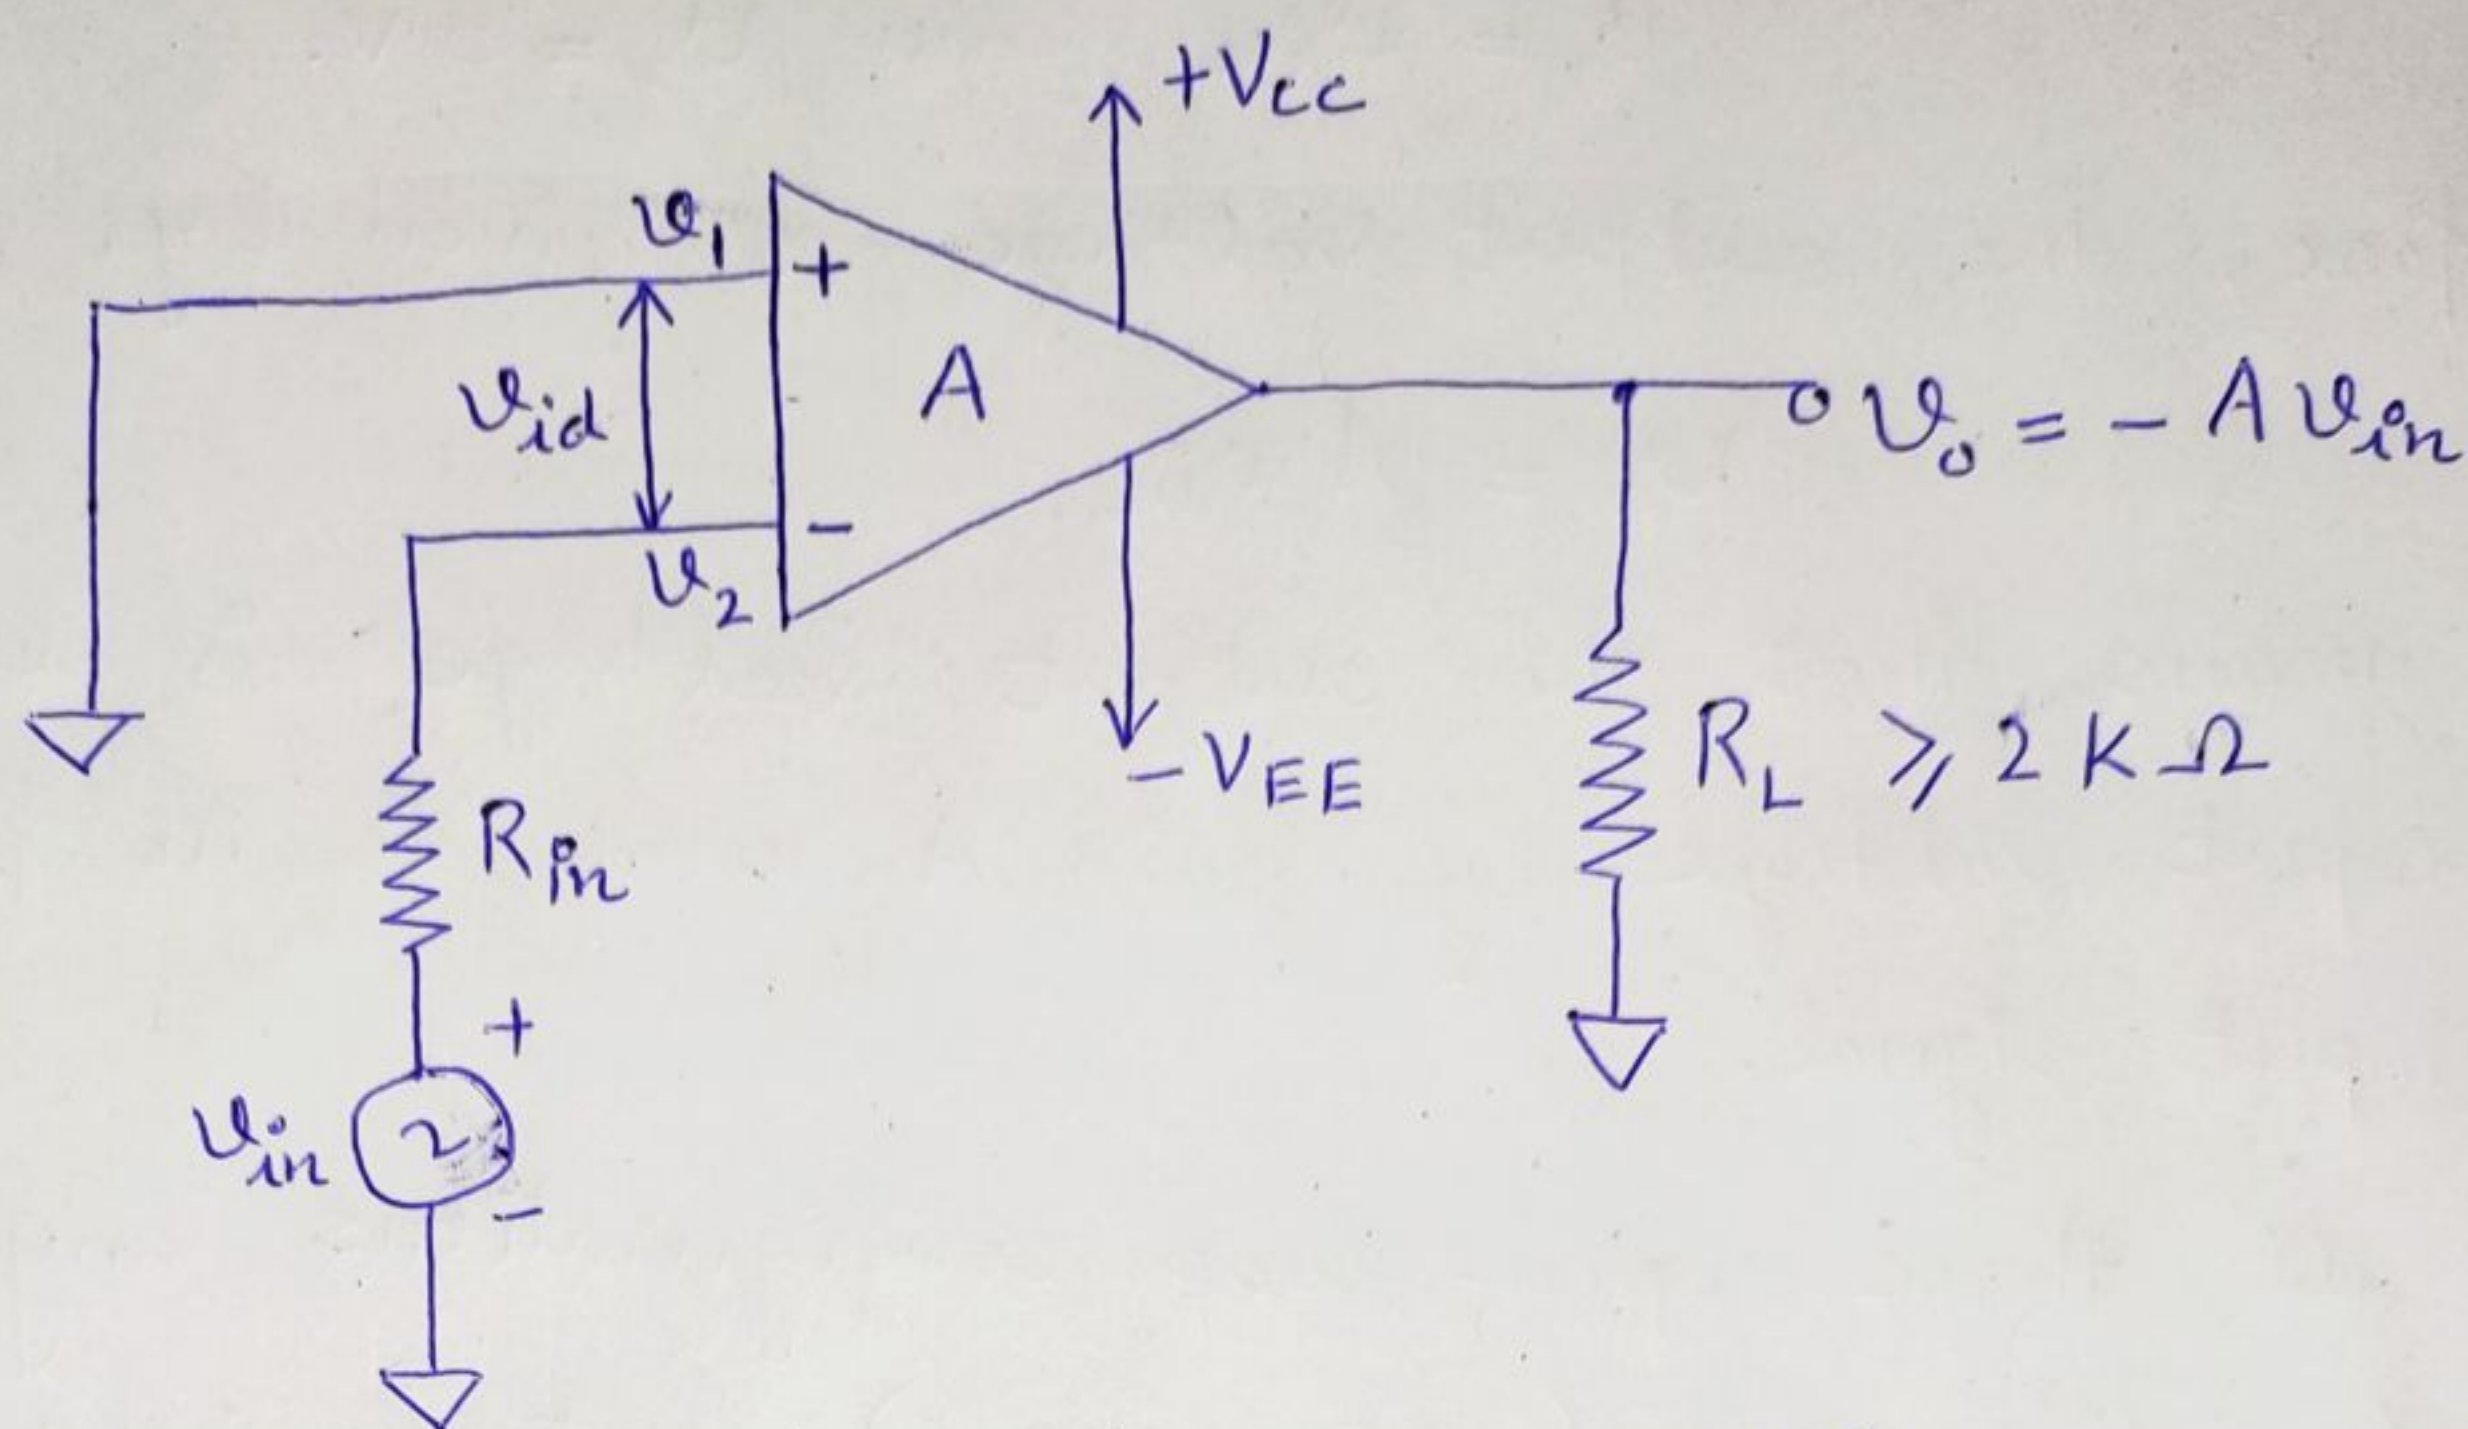 +Vcc
v₁
+
A
vid
v₀ = - A vin
-
v₂
-VEE
RL ⩾ 2 K Ω
Rin
+
vin
-